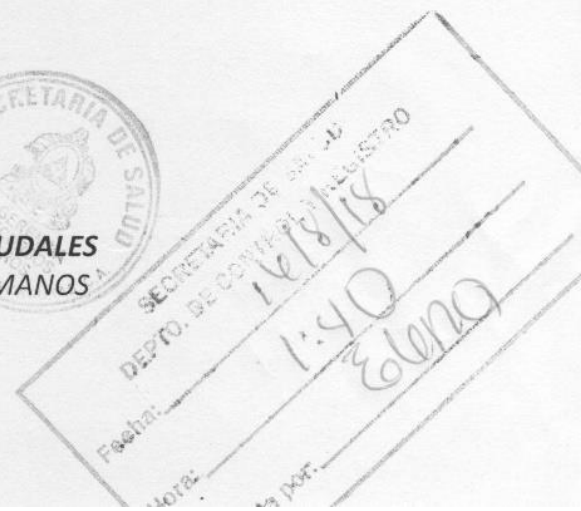 CRETARIA DE SALUD
UDALES
MANOS
SECRETARIA DE SALUD
DEPTO. DE CONTROL Y REGISTRO
Fecha: 16/8/18
Hora: 1:40
por: Elena